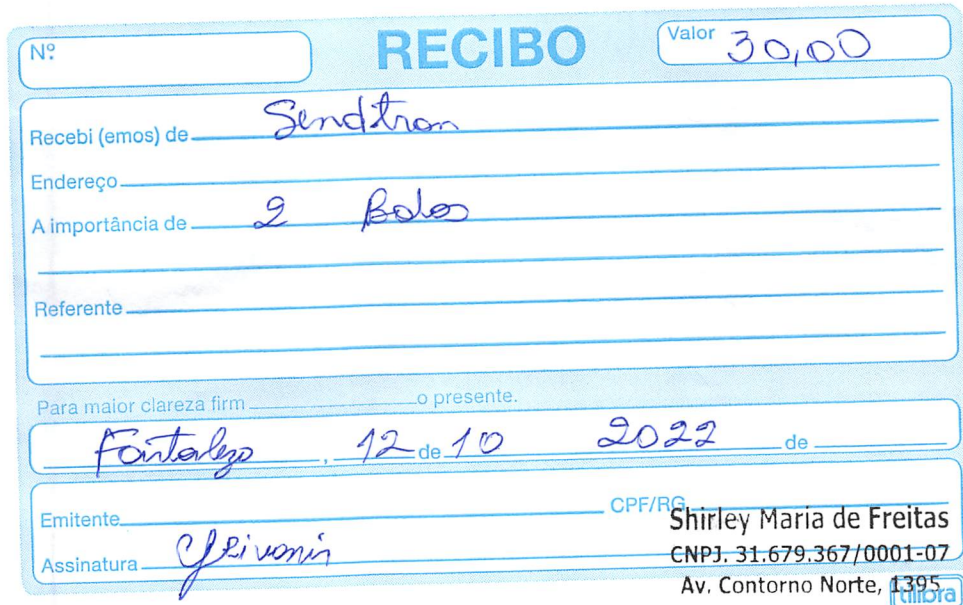 Nº RECIBO Valor 30,00
Recebi (emos) de Sendtron
Endereço
A importância de 2 Bolos
Referente
Para maior clareza firm o presente.
Fortaleza, 12 de 10 2022 de
Emitente CPF/RG
Shirley Maria de Freitas
Assinatura
CNPJ. 31.679.367/0001-07
Av. Contorno Norte, 1395
tilibra